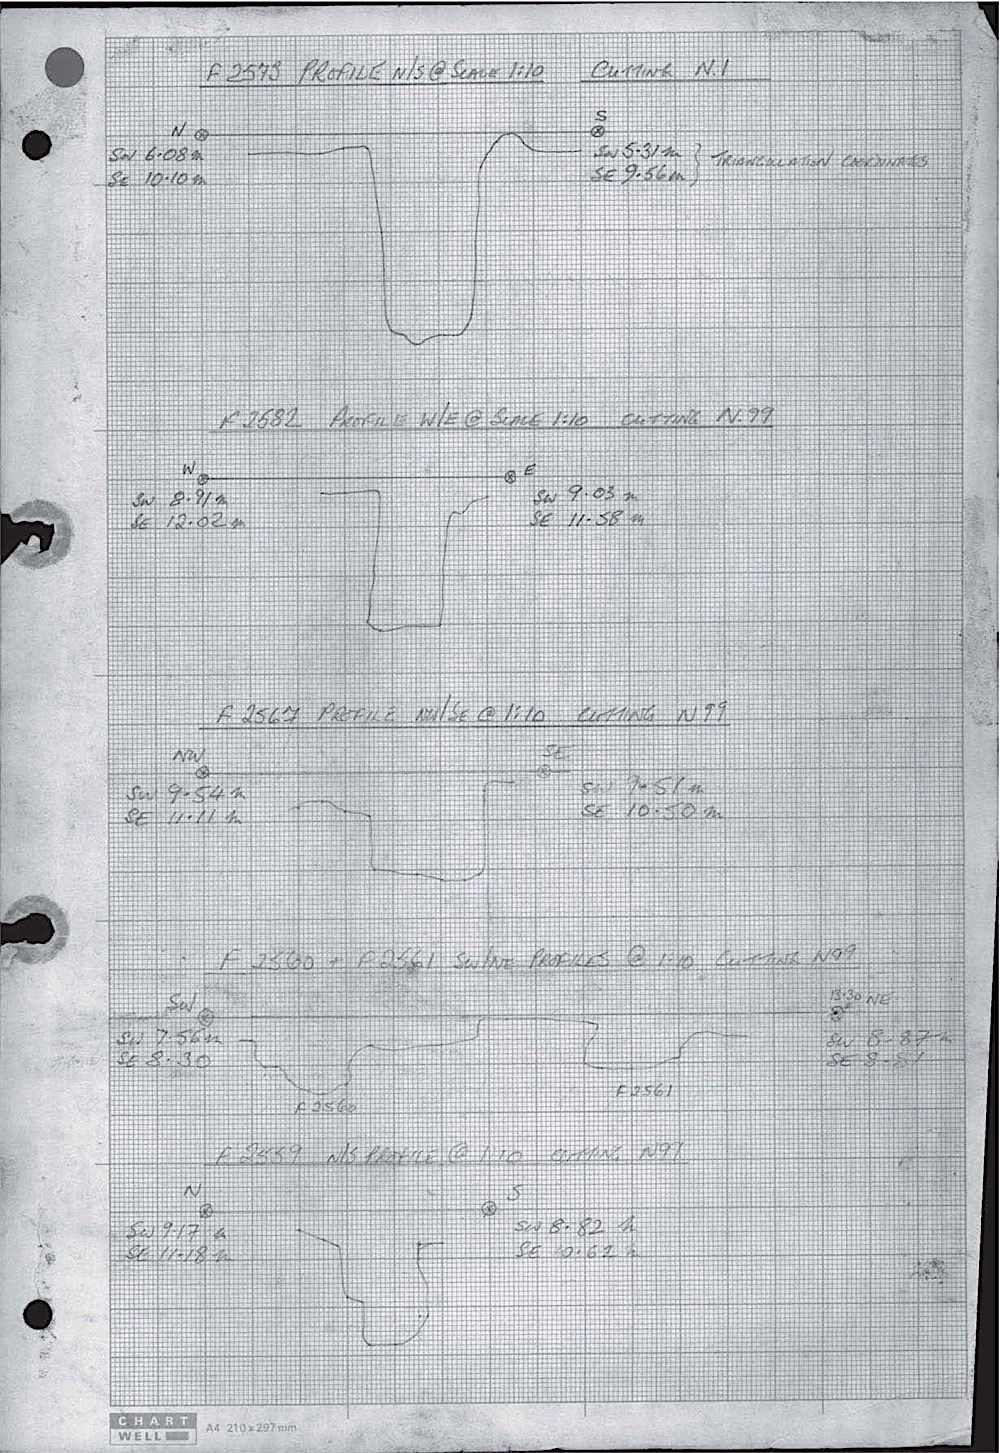 F 2573 PROFILE N/S @ SCALE 1:10 CUTTING N.1
N
S
SW 6.08m
SE 10.10m
SW 5.31m
SE 9.56m
TRIANGULATION COORDINATES
F 2582 PROFILE W/E @ SCALE 1:10 CUTTING N.99
W
E
SW 8.91m
SE 12.02m
SW 9.03 m
SE 11.58 m
F 2567 PROFILE NW/SE @ 1:10 CUTTING N99
NW
SE
SW 9.54m
SE 11.11 m
SW 9.51m
SE 10.50 m
F 2560 + F 2561 SW/NE PROFILES @ 1:10 CUTTING N99
SW
13.30 NE
SW 7.56m
SE 8.30
SW 8.87m
SE 8.81
F 2560
F 2561
F 2559 N/S PROFILE @ 1:10 CUTTING N97
N
S
SW 9.17 m
SE 11.18 m
SW 8.82 m
SE 10.62 m
CHART
WELL
A4 210x297mm